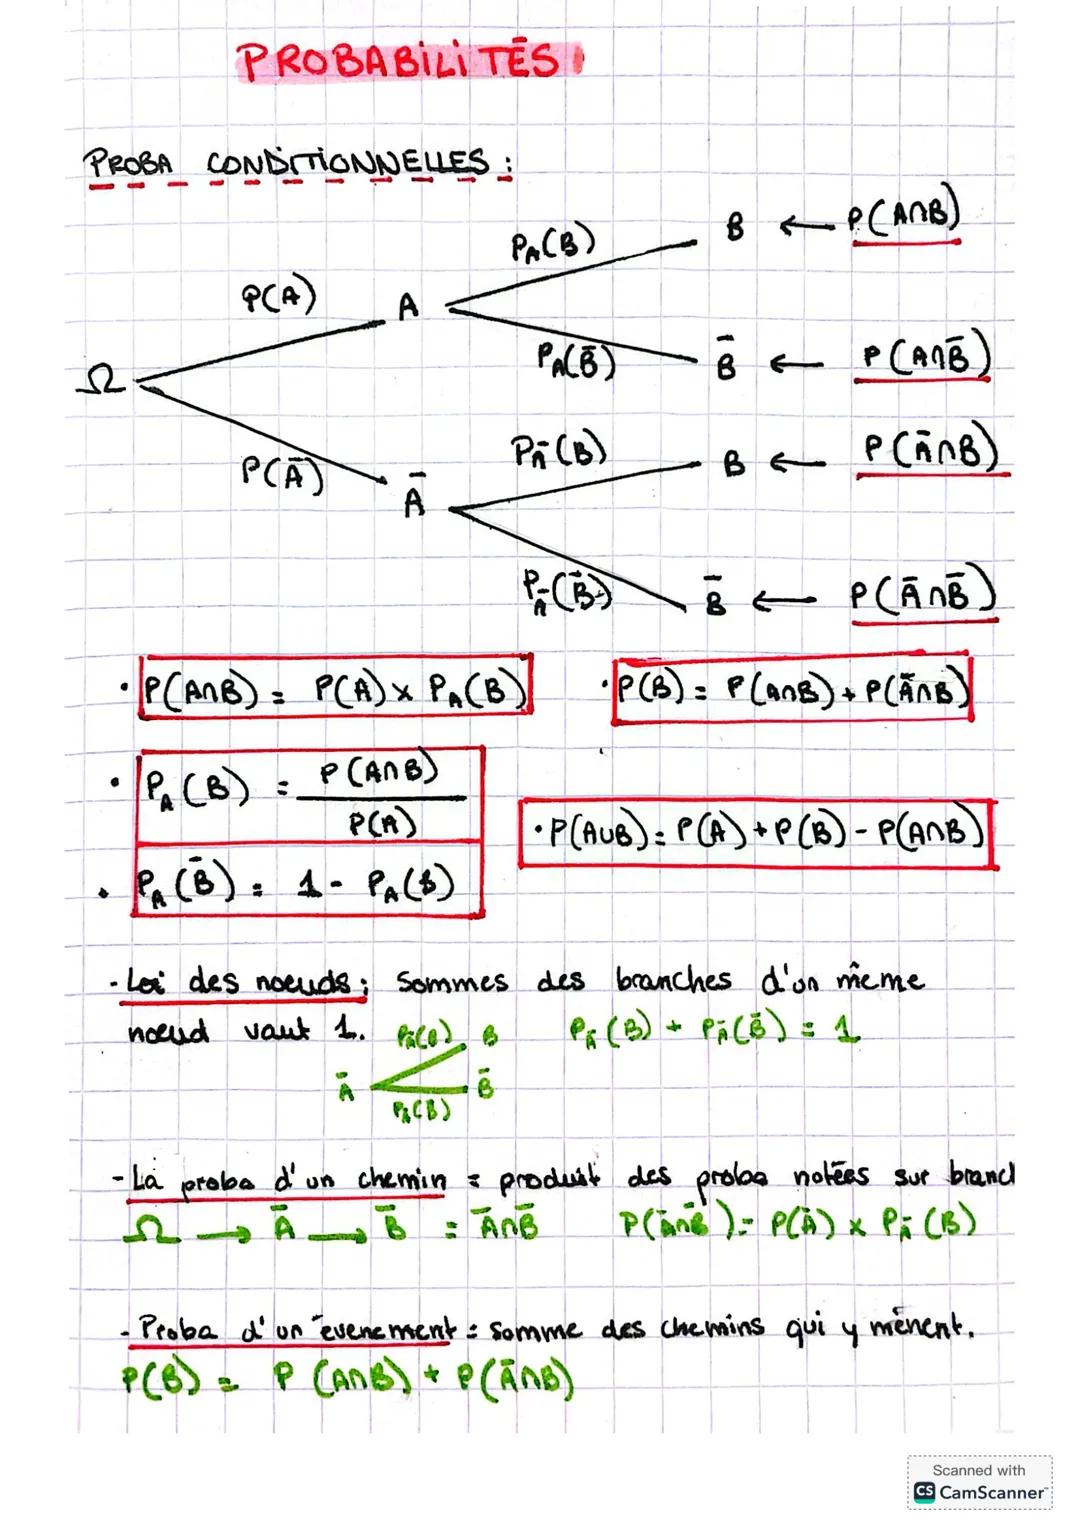 PROBABILITÉS
PROBA CONDITIONNELLES :
P_A(B) B ← P(A∩B)
P(A) A
P_A(B̄) B̄ ← P(A∩B̄)
Ω
P_Ā(B) B ← P(Ā∩B)
P(Ā) Ā
P_Ā(B̄) B̄ ← P(Ā∩B̄)
· P(A∩B) = P(A) × P_A(B) · P(B) = P(A∩B) + P(Ā∩B)
· P_A(B) = P(A∩B) / P(A)
· P(A∪B) = P(A) + P(B) - P(A∩B)
· P_A(B̄) = 1 - P_A(B)
- Loi des noeuds : Sommes des branches d'un même
noeud vaut 1. P_Ā(B) B P_Ā(B) + P_Ā(B̄) = 1
Ā B̄
P_Ā(B̄)
- La proba d'un chemin = produit des proba notées sur branc
Ω → Ā → B̄ = Ā∩B̄ P(Ā∩B̄) = P(Ā) × P_Ā(B)
- Proba d'un évenement = somme des chemins qui y mènent.
P(B) = P(A∩B) + P(Ā∩B)
Scanned with
CS CamScanner